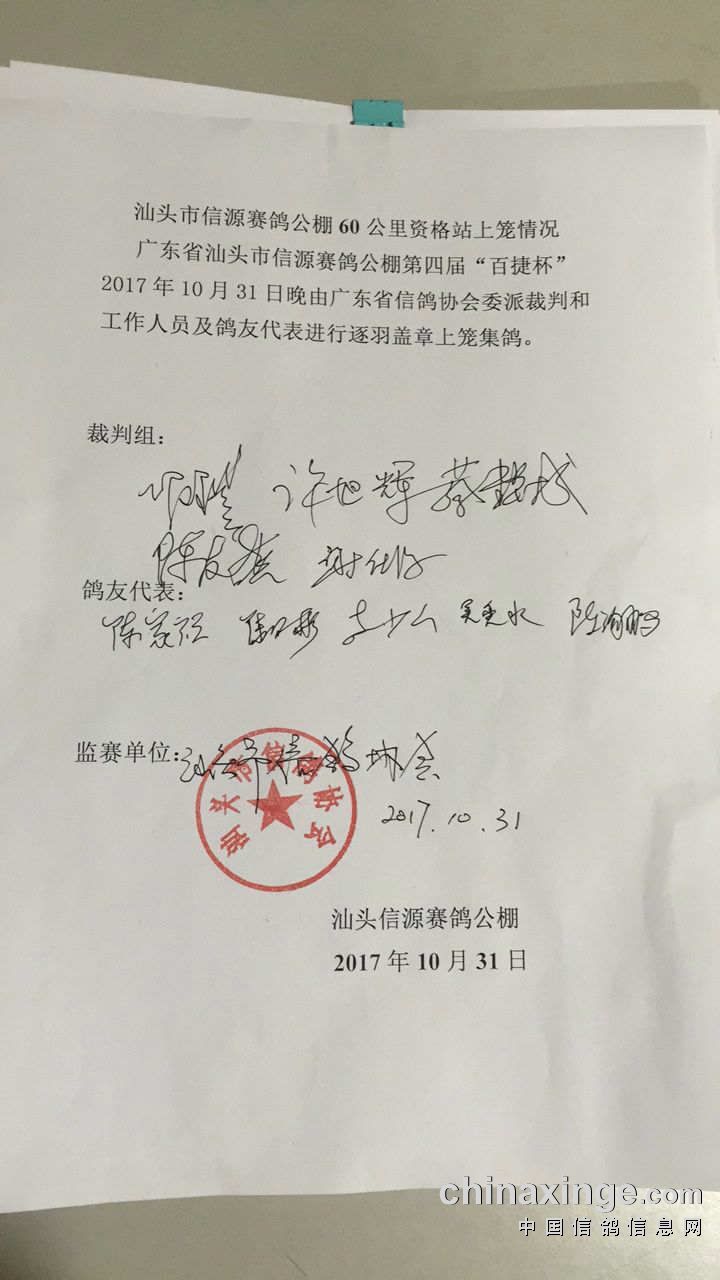 汕头市信源赛鸽公棚60公里资格站上笼情况
广东省汕头市信源赛鸽公棚第四届“百捷杯”
2017年10月31日晚由广东省信鸽协会委派裁判和
工作人员及鸽友代表进行逐羽盖章上笼集鸽。
裁判组：
许旭辉
陈友
鸽友代表：
监赛单位：汕头市信鸽协会
汕头市信鸽协会
2017.10.31
汕头信源赛鸽公棚
2017年10月31日
chinaxinge.com
中国信鸽信息网